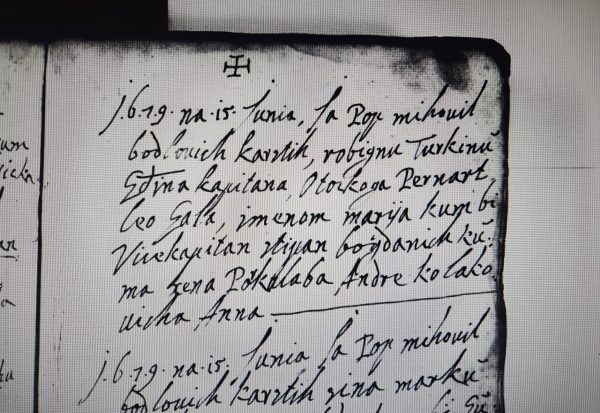 J.6.7.9. na .15. Junia, Ja Pop mihovil
bodlovich karstih, robignu Turkinu
Gdina kapitana, Otockoga Pernart,
leo Gala, jmenom marija kum bi
Vivekapitan stipan bogdanich ku,
ma xena Potkulaba, Andre kolako,
vicha, Anna.
J.6.7.9. na .15. Junia Ja Pop mihovil
bodlovich karstih sina marku